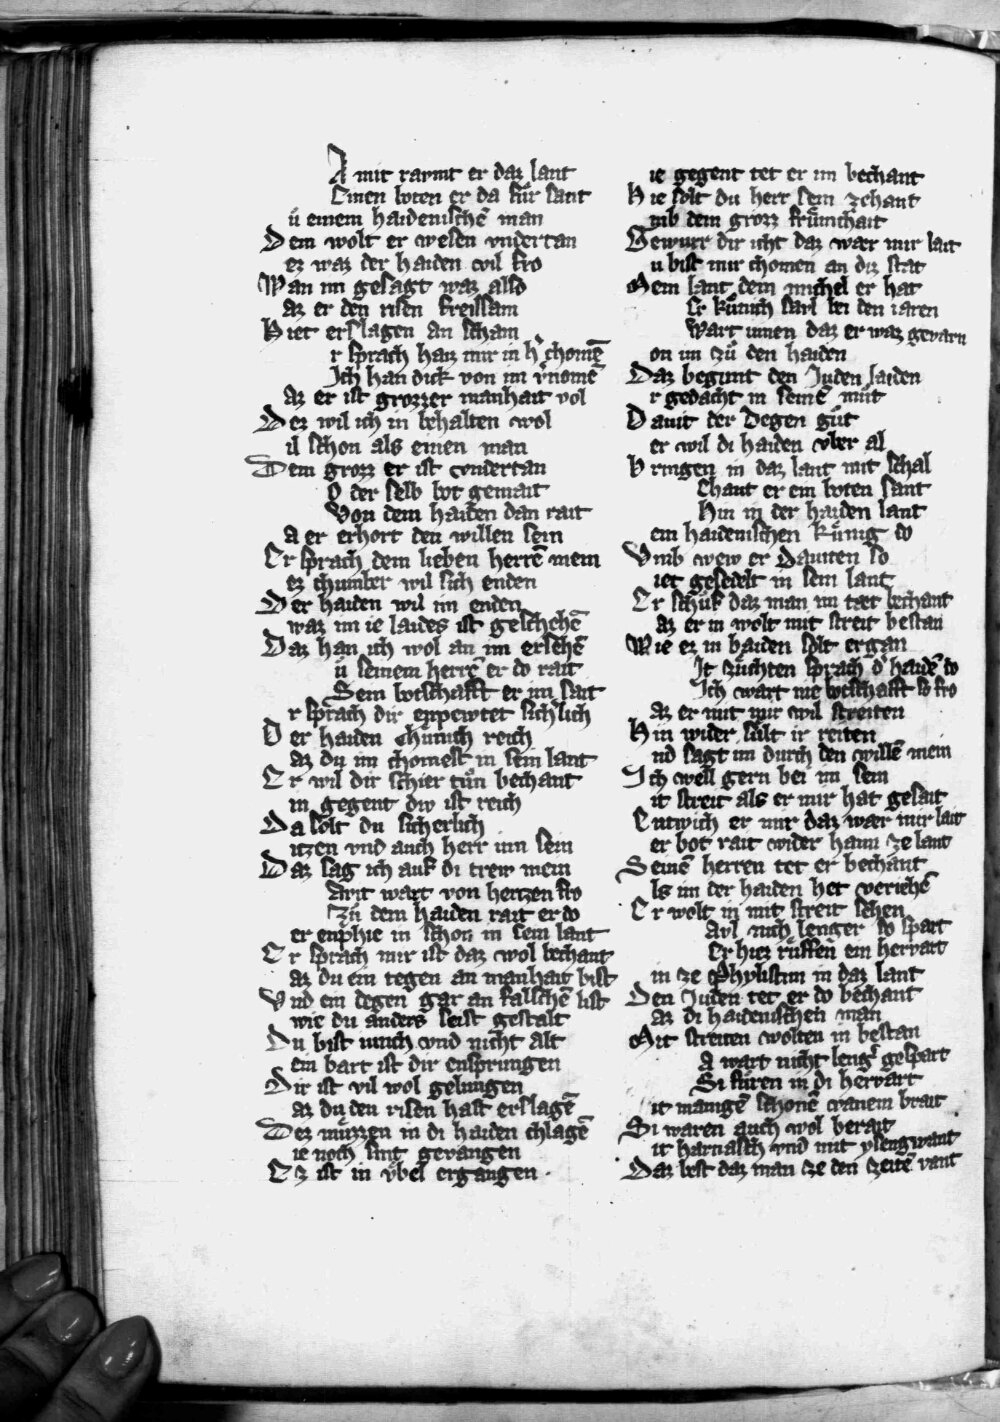 A mit raumt er daz lant
Einen boten er da fuͤr sant
uͤ einem haidenischē man
Dem wolt er wesen vndertan
ez waz der haiden vil fro
Wan im gesagt waz also
az er den risen freissam
Hiet erslagen an scham
r sprach haiz mir in h̓ chomē
Ich han dick von im v̓nomē
az er ist grozzer manhait vol
Dez wil ich in behalten wol
il schon als einen man
Dem grozz er ist vndertan
O der selb bot gemait
Von dem haiden dan rait
a er erhort den willen sein
Er sprach dem lieben herrē mein
ez chumber wil sich enden
Der haiden wil im enden
waz im ie laides ist geschehē
Daz han ich wol an im ersehē
uͤ seinem herrē er do rait
Sein botschafft er im sait
r sprach dir enpewtet sichlich
Der haiden chuͤnich reich
az du im chomest in sein lant
Er wil dir schier tuͦn bechant
in gegent diw ist reich
Da solt du sicherlich
itzen vnd auch herr inn sein
Daz sag ich auf di trew mein
Avit wart von hertzen fro
Zuͦ dem haiden rait er do
er enphie in schon in sein lant
Er sprach mir ist daz wol bechant
az du ein tegen an manhait bist
Vnd ein degen gar an falschē list
wie du anders seist gestalt
Du bist iunch vnd nicht alt
ein bart ist dir ensprungen
Dir ist vil wol gelungen
az du den risen hast erslagē
Dez muͤzzen in di haiden chlagē
ie noch sint gevangen
Ez ist in vͤbel ergangen
ie gegent tet er im bechant
Hie solt du herr sein zehant
mb dein grozz fruͤmchait
Gewurr dir icht daz waer mir lait
u bist mir chomen an diz stat
Mein lant dein michel er hat
Er kuͤnich sarl bei den iaren
Wart innen daz er waz gevarn
on im zuͦ den haiden
Daz begunt den Juden laiden
r gedacht in seinē muͦt
Dauit der Degen guͦt
er wil di haiden vber al
Bringen in daz lant mit schal
Ehant er ein boten sant
Hin in der haiden lant
ein haidenischen kuͤnig do
Vmb wew er Dauiten so
iet gesedelt in sein lant
Er schuͦf daz man im taet bechant
az er in wolt mit streit bestan
Wie ez in baiden solt ergan
It zuͤchten sprach d̓ haidē do
Ich wart nie botschafft so fro
az er mit mir wil streiten
Hin wider suͤlt ir reiten
nd sagt im durch den willē mein
Ich well gern bei im sein
it streit als er mir hat gesait
Entwich er mir daz waer mir lait
er bot rait wider haim ze lant
Seinē herren tet er bechant
ls im der haiden het veriehē
Er wolt in mit streit sehen
Avl nich lenger do spart
Er hiez ruͤffen ein hervart
in ze Phylistim in daz lant
Den Juden tet er do bechant
az di haidenischen man
Mit streiten wolten in bestan
A wart nicht leng̓ gespart
Si fuͤren in di hervart
it manigē schonē vanem brait
Si waren auch wol berait
it harnasch vnd mit ysengwant
Daz best daz man ze den zeitē vant